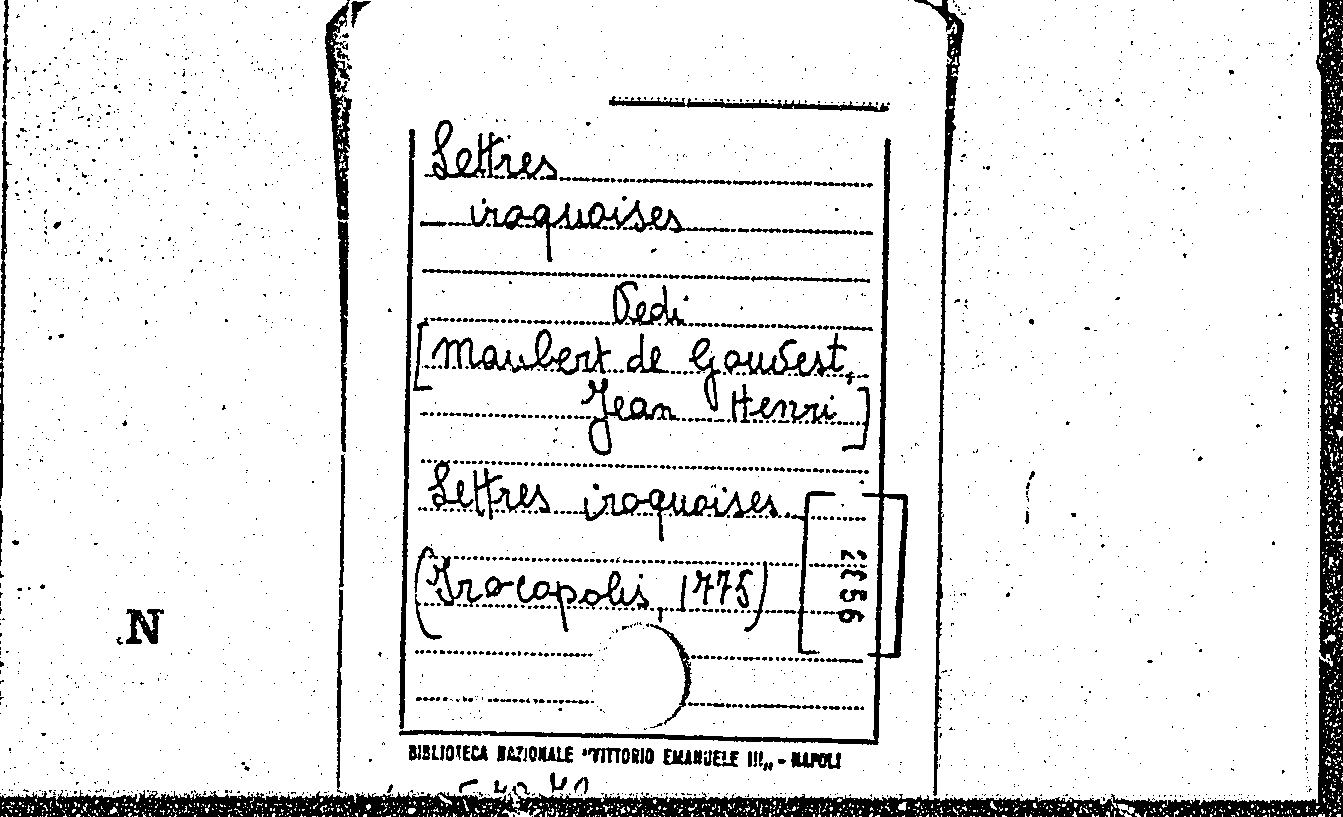 Lettres
iroquoises
Vedi
[Maubert de Gouvest,
Jean Henri]
Lettres iroquoises.
(Irocopolis, 1775)
2356
BIBLIOTECA NAZIONALE "VITTORIO EMANUELE III„ - NAPOLI
N